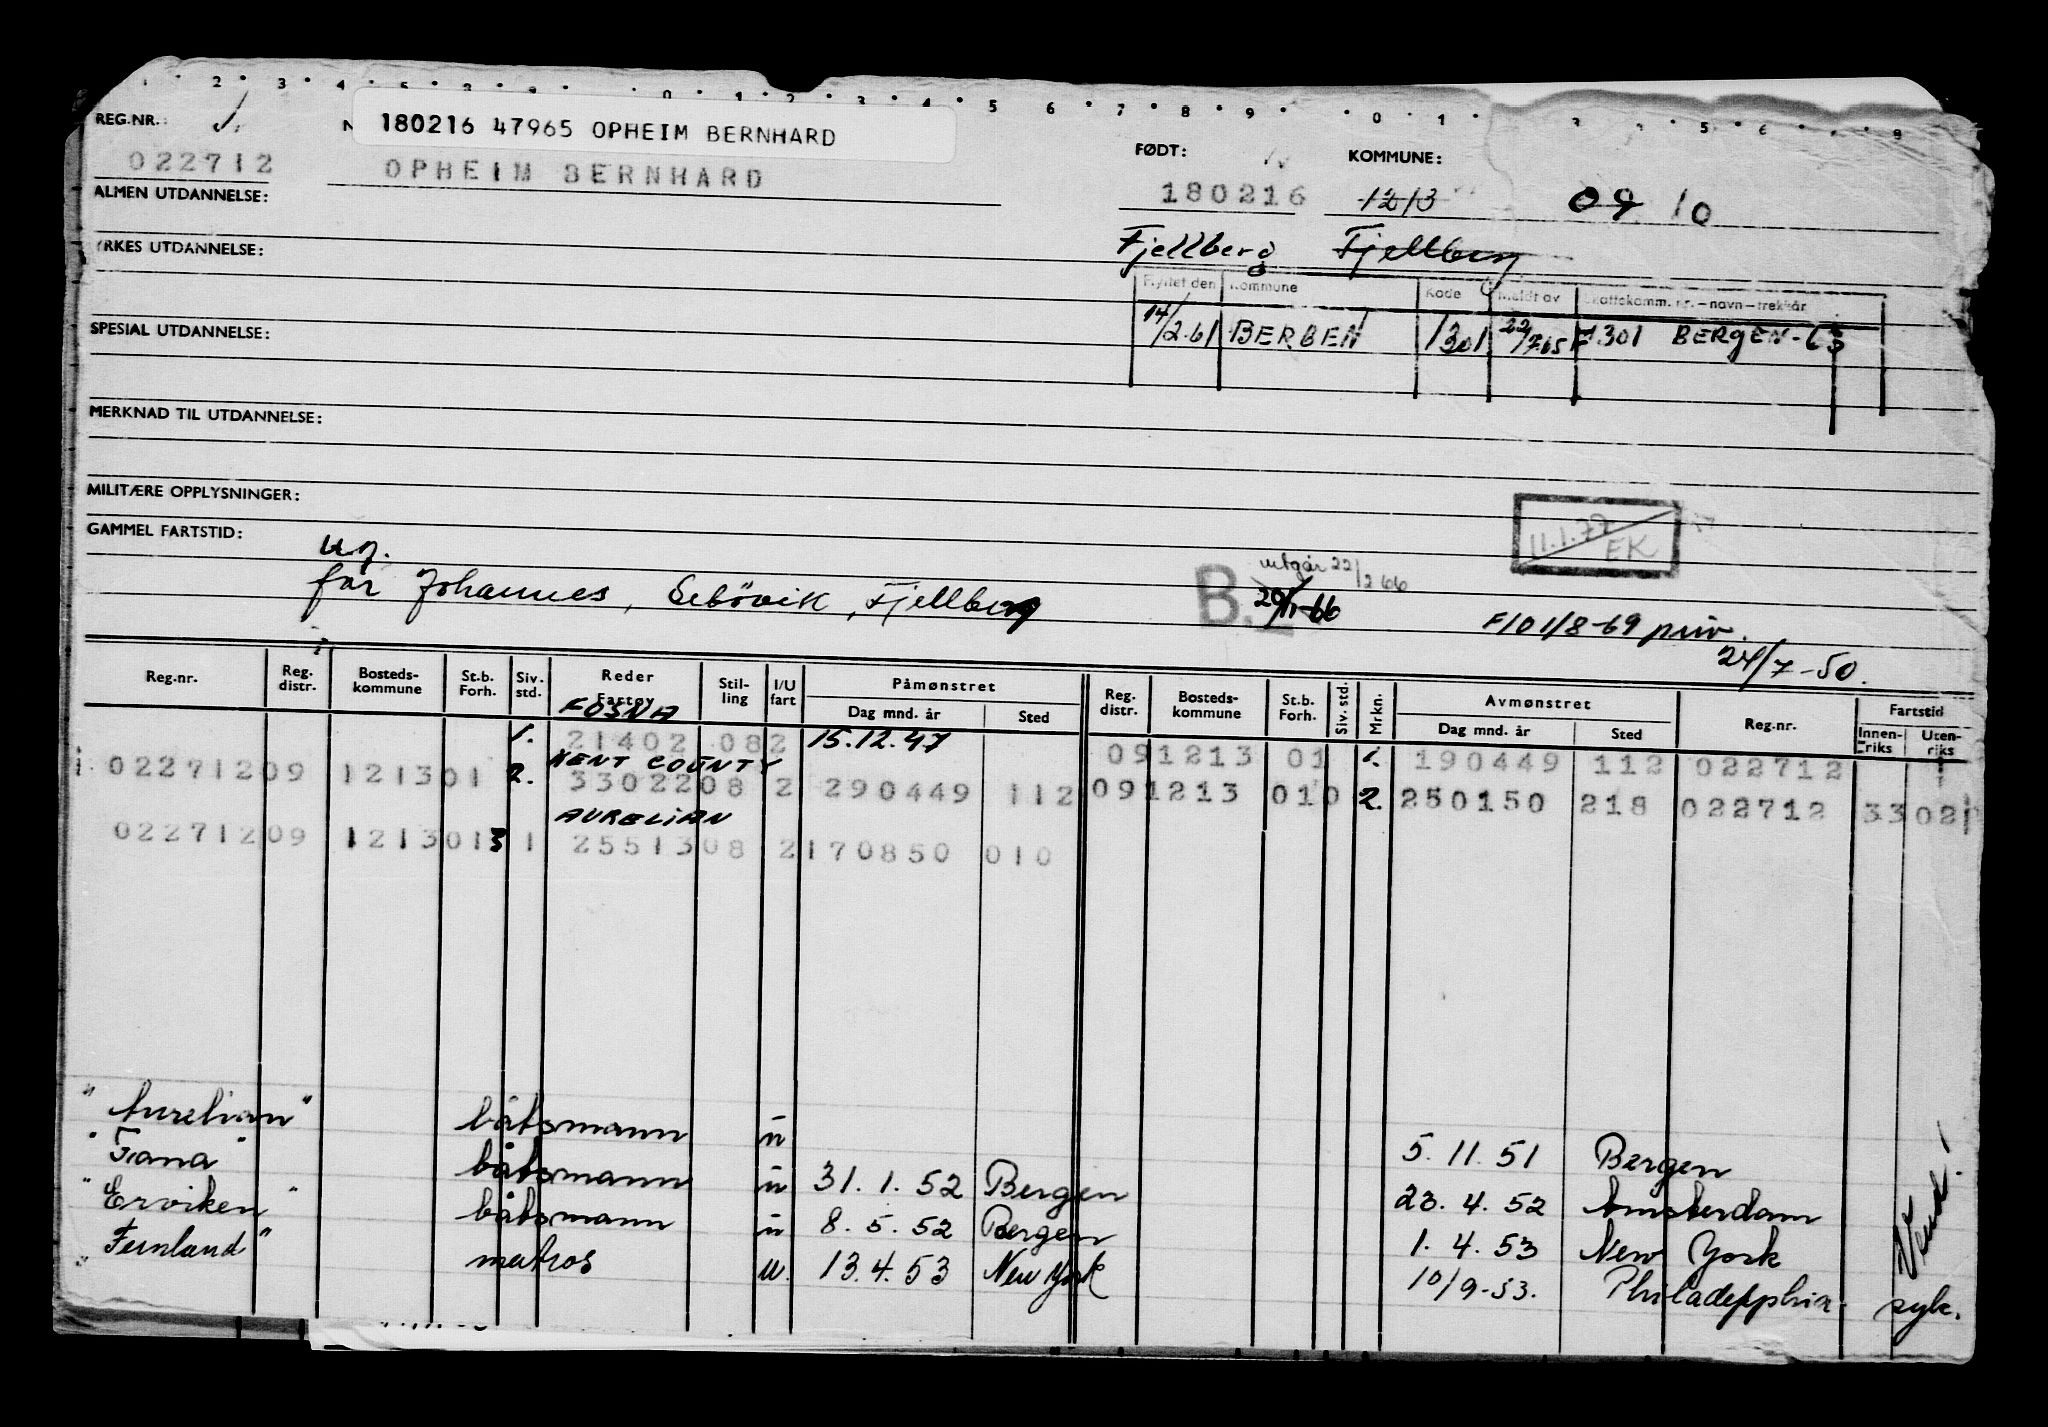 REG.NR.
180216 47965 OPHEIM BERNHARD
FØDT:
KOMMUNE:
022712
OPHEIM BERNHARD
180216
1213
09 10
ALMEN UTDANNELSE:
YRKES UTDANNELSE:
Fjellberg Fjellberg
Flyttet den Kommune Kode Meldt av Skattekomm. nr. – navn – trekkår
14/2.61 BERGEN 1301 22/7.65 F 301 BERGEN-63
SPESIAL UTDANNELSE:
MERKNAD TIL UTDANNELSE:
MILITÆRE OPPLYSNINGER:
GAMMEL FARTSTID:
11.1.77 EK
ug.
far Johannes, Sebövik, Fjellberg
B.
utgår 22/2 66
20/1-66
F101/8-69 priv.
24/7-50.
Reg.nr. Reg. distr. Bosteds-kommune St.b. Forh. Siv. std. Reder Fartøy Stil-ling I/U fart Påmønstret Dag mnd. år Sted Reg. distr. Bosteds-kommune St.b. Forh. Siv. std. Mrkn. Avmønstret Dag mnd. år Sted Reg.nr. Fartstid Innen-riks Uten-riks
FOSNA
1. 21402 08 2 15.12.47 09 1213 01 1. 190449 112 022712
KENT COUNTY
022712 09 1213 01 2. 33022 08 2 290449 112 09 1213 01 0 2. 250150 218 022712 33 02
AURELIAN
022712 09 1213 01 3 1 25513 08 2 170850 010
"Aurelian" båtsmann u 5. 11. 51 Bergen
"Fana" båtsmann u 31. 1. 52 Bergen 23. 4. 52 Amsterdam
"Erviken" båtsmann u 8. 5. 52 Bergen 1. 4. 53 New York
"Fernland" matros u. 13.4.53 New York 10/9-53. Philadepphia syk.
Vend!